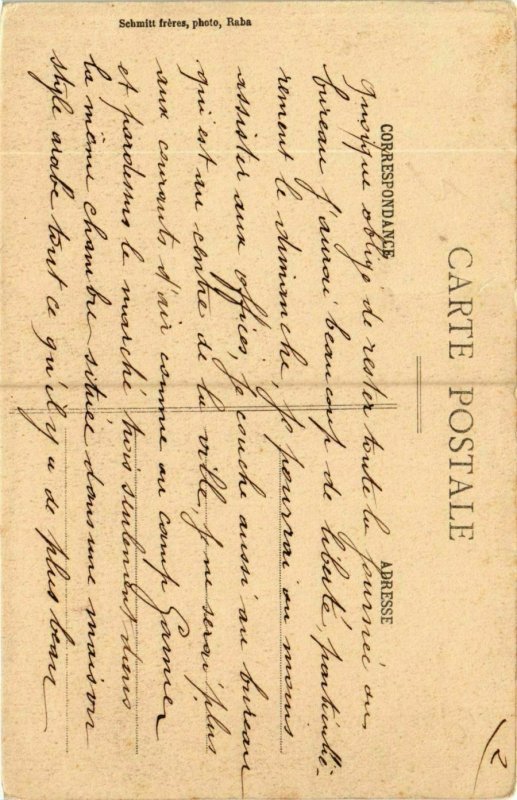 Schmitt frères, photo, Raba
CARTE POSTALE
CORRESPONDANCE
ADRESSE
quoique obligé de rester toute la journée au
bureau j'aurai beaucoup de liberté, particuliè-
rement le dimanche, Je pourrai au moins
assister aux offices, Je couche aussi au bureau
qui est au centre de la ville, je ne serai plus
aux courants d'air comme au camp Garnier
et pardessus le marché trois seulement dans
la même chambre située dans une maison
style arabe tout ce qu'il y a de plus beau